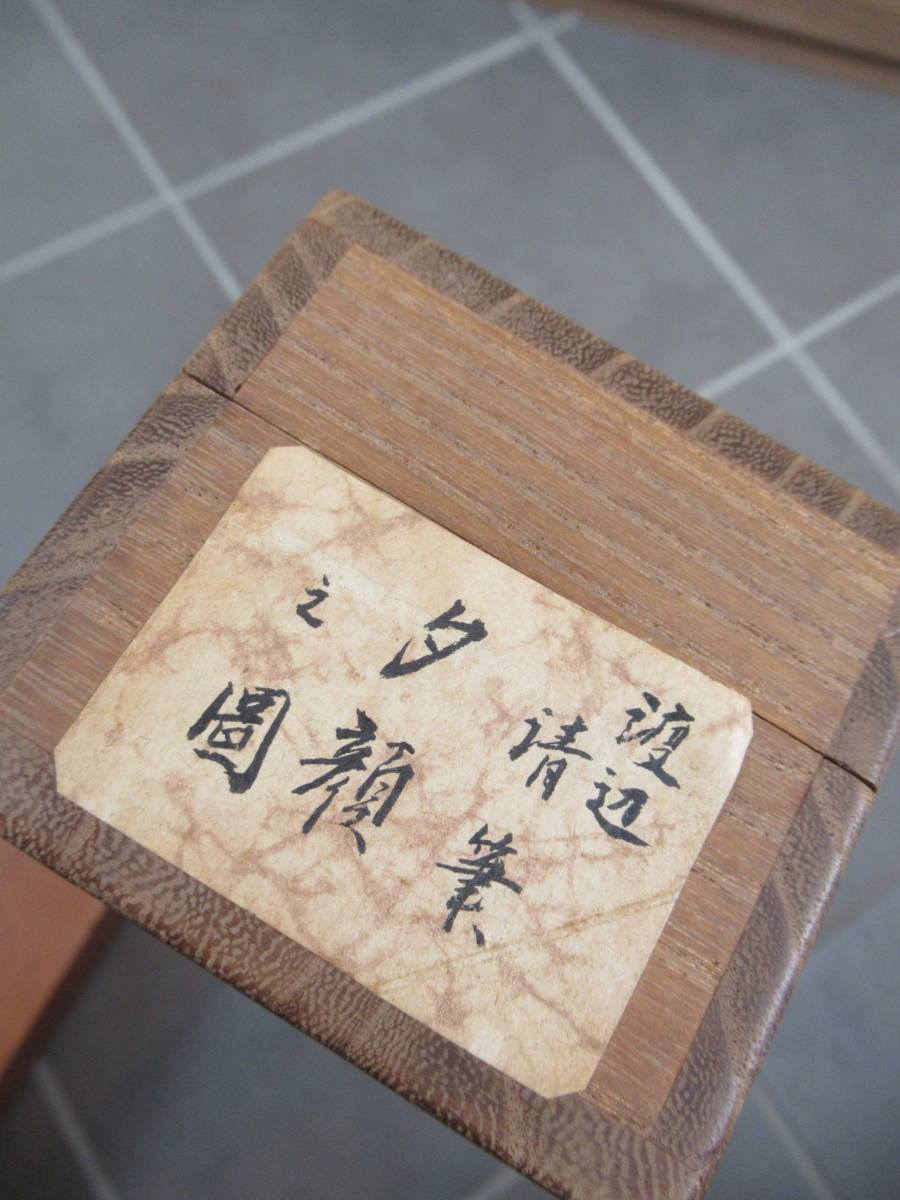 渡辺
清筆
夕顔
之圖